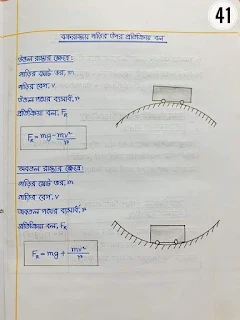 41
বক্ররাস্তায় গাড়ির উপর প্রতিক্রিয়া বল
উত্তল রাস্তার ক্ষেত্রে:
গাড়ির মোট ভর, m
গাড়ির বেগ, v
উত্তল পথের ব্যাসার্ধ, r
প্রতিক্রিয়া বল, F_R
F_R = mg - mv²/r
অবতল রাস্তার ক্ষেত্রে:
গাড়ির মোট ভর, m
গাড়ির বেগ, v
অবতল পথের ব্যাসার্ধ, r
প্রতিক্রিয়া বল, F_R
F_R = mg + mv²/r